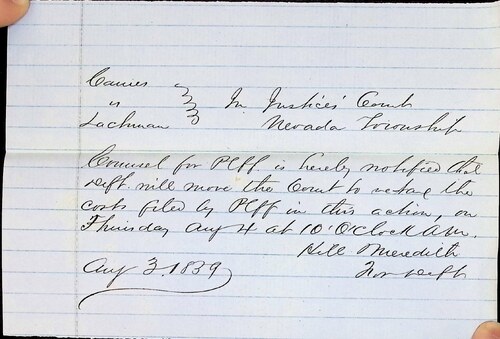 vs } In Justices Court
Lachman Nevada Township
Counsel for Plff is hereby notified that
Deft will move the Court to retax the
costs filed by Plff in this action, on
Thursday Aug 4 at 10 O'Clock A.M.
Hill Meredith
For Deft
Aug 3. 1859